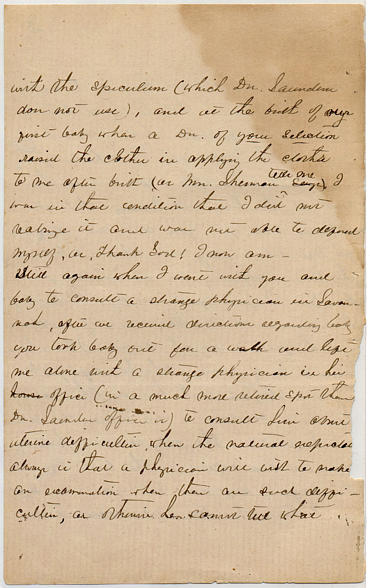 with the speculum (which Dr. Saunders
does not use), and at the birth of my
first baby when a Dr. of your selection
raised the clothes in applying the cloths
to me after birth (as Mrs. Sherman tells me
says) I
was in that condition that I did not
realize it and was not able to defend
myself, as, Thank God! I now am -
Still again when I went with you and
baby to consult a strange physician in Savan-
nah, after we received directions regarding baby
you took baby out for a walk and left
me alone with a strange physician in his
house office (in a much more retired spot than
Dr. Saunders office is) to consult him about
uterine difficulties when the natural
always is that a physician will wish to make
an examination when there are such diffi-
culties, as otherwise he cannot tell what